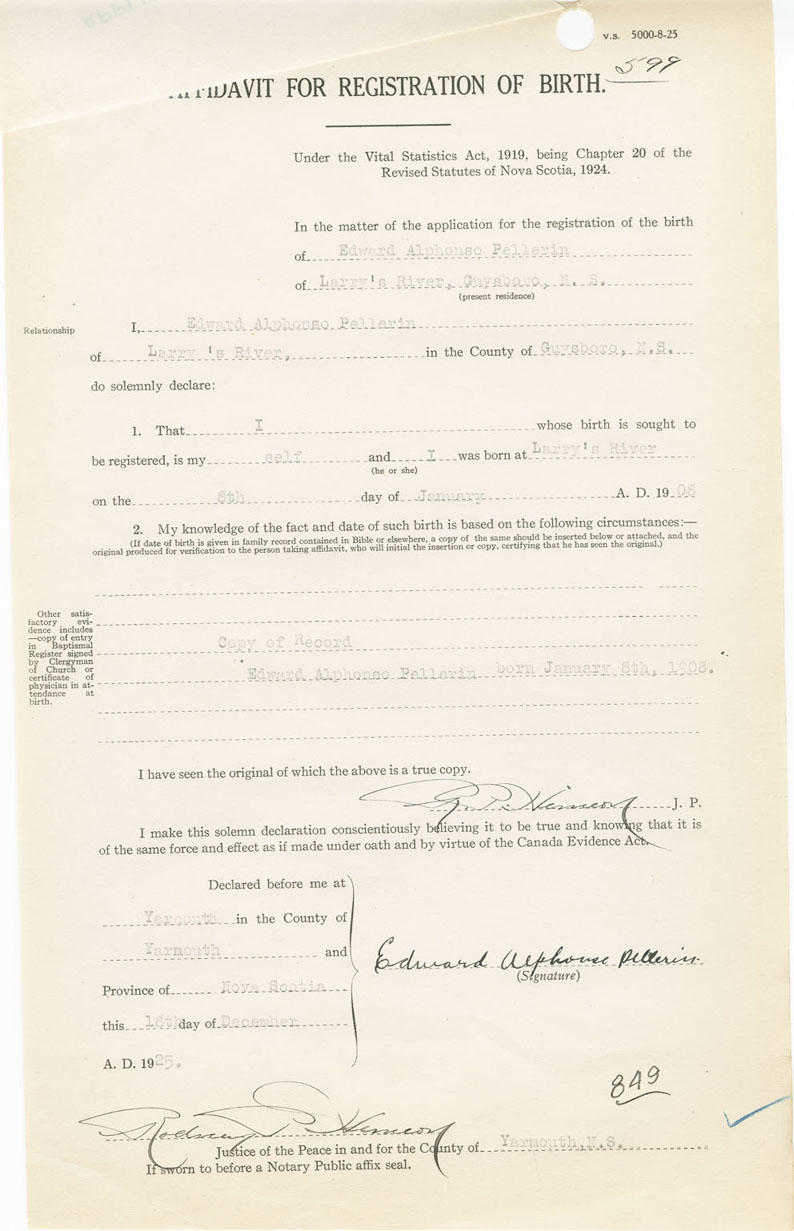 V.S. 5000-8-25
599
AFFIDAVIT FOR REGISTRATION OF BIRTH.
Under the Vital Statistics Act, 1919, being Chapter 20 of the
Revised Statutes of Nova Scotia, 1924.
In the matter of the application for the registration of the birth
of Edward Alphonso Pellerin
of Larry's River, Guysboro, N. S.
(present residence)
Relationship
I, Edward Alphonso Pellerin
of Larry 's River, in the County of Guysboro, N.S.
do solemnly declare:
1. That I whose birth is sought to
be registered, is my self and I was born at Larry's River
(he or she)
on the 8th day of January A. D. 1908
2. My knowledge of the fact and date of such birth is based on the following circumstances:—
(If date of birth is given in family record contained in Bible or elsewhere, a copy of the same should be inserted below or attached, and the
original produced for verification to the person taking affidavit, who will initial the insertion or copy, certifying that he has seen the original.)
Other satis-
factory evi-
dence includes
—copy of entry
in Baptismal
Register signed
by Clergyman
of Church or
certificate of
physician in at-
tendance at
birth.
Copy of Record
Edward Alphonso Pellerin born January 8th, 1908.
I have seen the original of which the above is a true copy.
R. P. Hemeon J. P.
I make this solemn declaration conscientiously believing it to be true and knowing that it is
of the same force and effect as if made under oath and by virtue of the Canada Evidence Act.
Declared before me at
Yarmouth in the County of
Yarmouth and
Province of Nova Scotia
this 18th day of December
A. D. 1925.
Edward Alphonse Pellerin
(Signature)
849
Rodney P. Hemeon
Justice of the Peace in and for the County of Yarmouth, N.S.
If sworn to before a Notary Public affix seal.